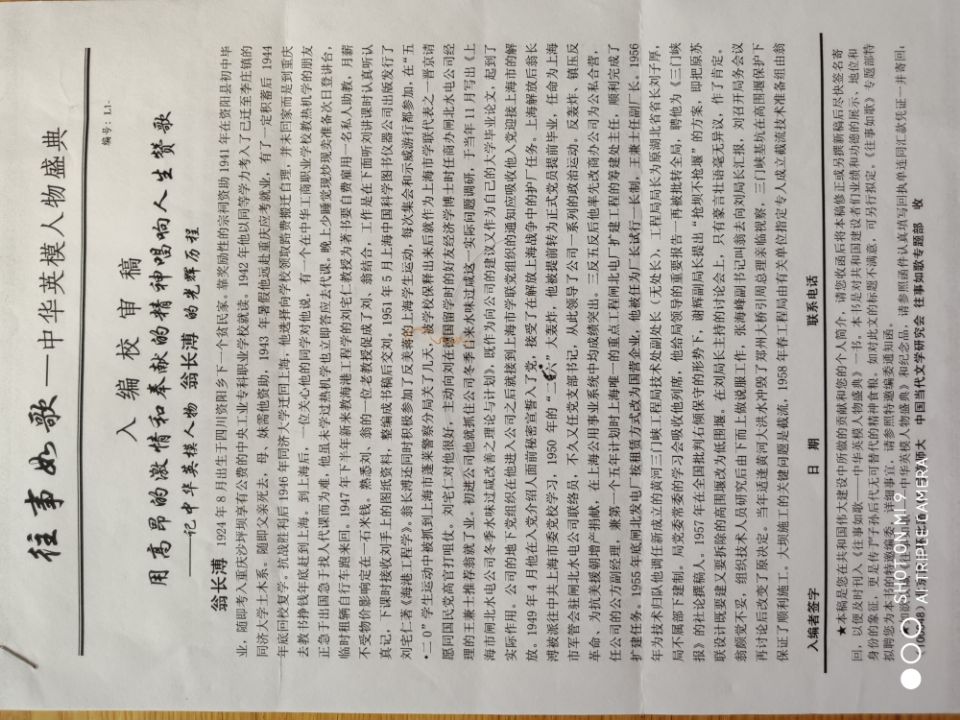 往事如歌—中华英模人物盛典
编号: L1-
入编校审稿
用高昂的激情和奉献的精神唱响人生赞歌
——记中华英模人物 翁长溥 的光辉历程
翁长溥 1924年8月出生于四川资阳乡下一个贫民家。靠奖励性的宗祠资助1941年在资阳县初中毕
业，随即考入重庆沙坪坝享有公费的中央工业专科职业学校就读。1942年他以同等学力考入了已迁至李庄镇的
同济大学土木系。随即父亲死去、母、妹需他资助，1943年暑假他远赴重庆应考就业，有了一定积蓄后1944
年底回校复学。抗战胜利后1946年同济大学迁回上海，他选择向学校领取路费搬迁自理，并未回家而是到重庆
去教书挣钱年底赶到上海。到上海后，一位关心他的同学对他说，有一个在中华工商职业学校教热机学的朋友
正急于出国急于找人代课而为难。他虽未学过热机学也立即答应去代课。晚上少睡觉现炒现卖准备次日登讲台，
临时租辆自行车跑来回。1947年下半年新来教海港工程学的刘宅仁教授为著书要自费雇用一名私人助教，月薪
不受物价影响定在一石米钱。熟悉刘、翁的一位老教授促成了刘、翁结合，工作是在下面听刘讲课时认真听认
真记，下课时接收刘手上的图纸资料，整编成书稿后交刘，1951年5月上海中国科学图书仪器公司出版发行了
刘宅仁者《海港工程学》。翁长溥还同时积极参加了反美蒋的上海学生运动，每次集会和示威游行都参加，在“五
·二0”学生运动中被抓到上海市蓬莱警察分局关了几天，被学校保释出来后就作为上海市学联代表之一晋京请
愿同国民党高官打咀仗。刘宅仁对他很好，主动向刘在德国留学时的好友经济学博士时任商办闸北水电公司经
理的王兼士推荐翁就了业。初进公司他就抓住公司冬季自来水味过咸这一实际问题调研，于当年11月写出《上
海市闸北水电公司冬季水味过咸改善之理论与计划》，既作为向公司的建议又作为自己的大学毕业论文，起到了
实际作用。公司的地下党组织在他进入公司之后就接到上海市学联党组织的通知应吸收他入党迎接上海市的解
放。1949年4月他在入党介绍人面前秘密宣誓入了党，接受了在解放上海战争中的护厂任务。上海解放后翁长
溥被派往中共上海市委党校学习，1950年的“二·六”大轰炸，他被提前转为正式党员提前毕业，任命为上海
市军管会驻闸北水电公司联络员，不久又任党支部书记，从此领导了公司一系列的政治运动，反轰炸、镇压反
革命、为抗美援朝增产捐献，在上海公用事业系统中均成绩突出。三反五反后他率先改商办公司为公私合营，
任公司的公方副经理，兼第一个五年计划时上海唯一的重点工程闸北电厂扩建工程的筹建处主任，顺利完成了
扩建任务。1955年底闸北发电厂按租赁方式改为国营企业，他被任为一长试行一长制，王兼士任副厂长。1956
年为技术归队他调任新成立的黄河三门峡工程局技术处副处长（无处长），工程局局长为原湖北省省长刘子厚，
局不属部下建制。局党委常委的学习会吸收他列席，他给局领导的重要报告一再被批转全局，聘他为《三门峡
报》的社论撰稿人。1957年在全国批判右倾保守的形势下，谢辉副局长提出“抢坝不抢堰”的方案，即把原苏
联设计既要建又要拆除的高围堰改为低围堰。在刘局长主持的讨论会上，只有豪言壮语毫无异议，作了肯定。
翁颇觉不妥，组织技术人员研究后由下而上做说服工作，张海峰副书记叫翁去向刘局长汇报，刘召开局务会议
再讨论后改变了原决定。当年适逢黄河大洪水冲毁了郑州大桥引周总理亲临视察，三门峡基坑在高围堰保护下
保证了顺利施工。大坝施工的关键问题是截流，1958年春工程局由有关单位指定专人成立截流技术准备组由翁
入编者签字 日 期 联系电话
★本稿是您在共和国伟大建设中所做的贡献和您的个人简介，请您收函后将本稿修正或另撰新稿后尽快签名寄
回，以便及时刊入《往事如歌——中华英模人物盛典》一书。本书是对共和国建设者们业绩和功德的展示、地位和
身份的象征，更是传于子孙后代无可替代的精神食粮。如对此文的标题不满意，可另行拟定，《往事如歌》专题部特
拟聘您为本书的特邀编委，详细事宜，请参照特邀编委通知函。
中华英模人物盛典》和纪念品，请参照函件认真填写回执单连同汇款凭证一并寄回，
师大 中国当代文学研究会 往事如歌专题部 收
SHOT ON MI 9
AI TRIPLE CAMERA